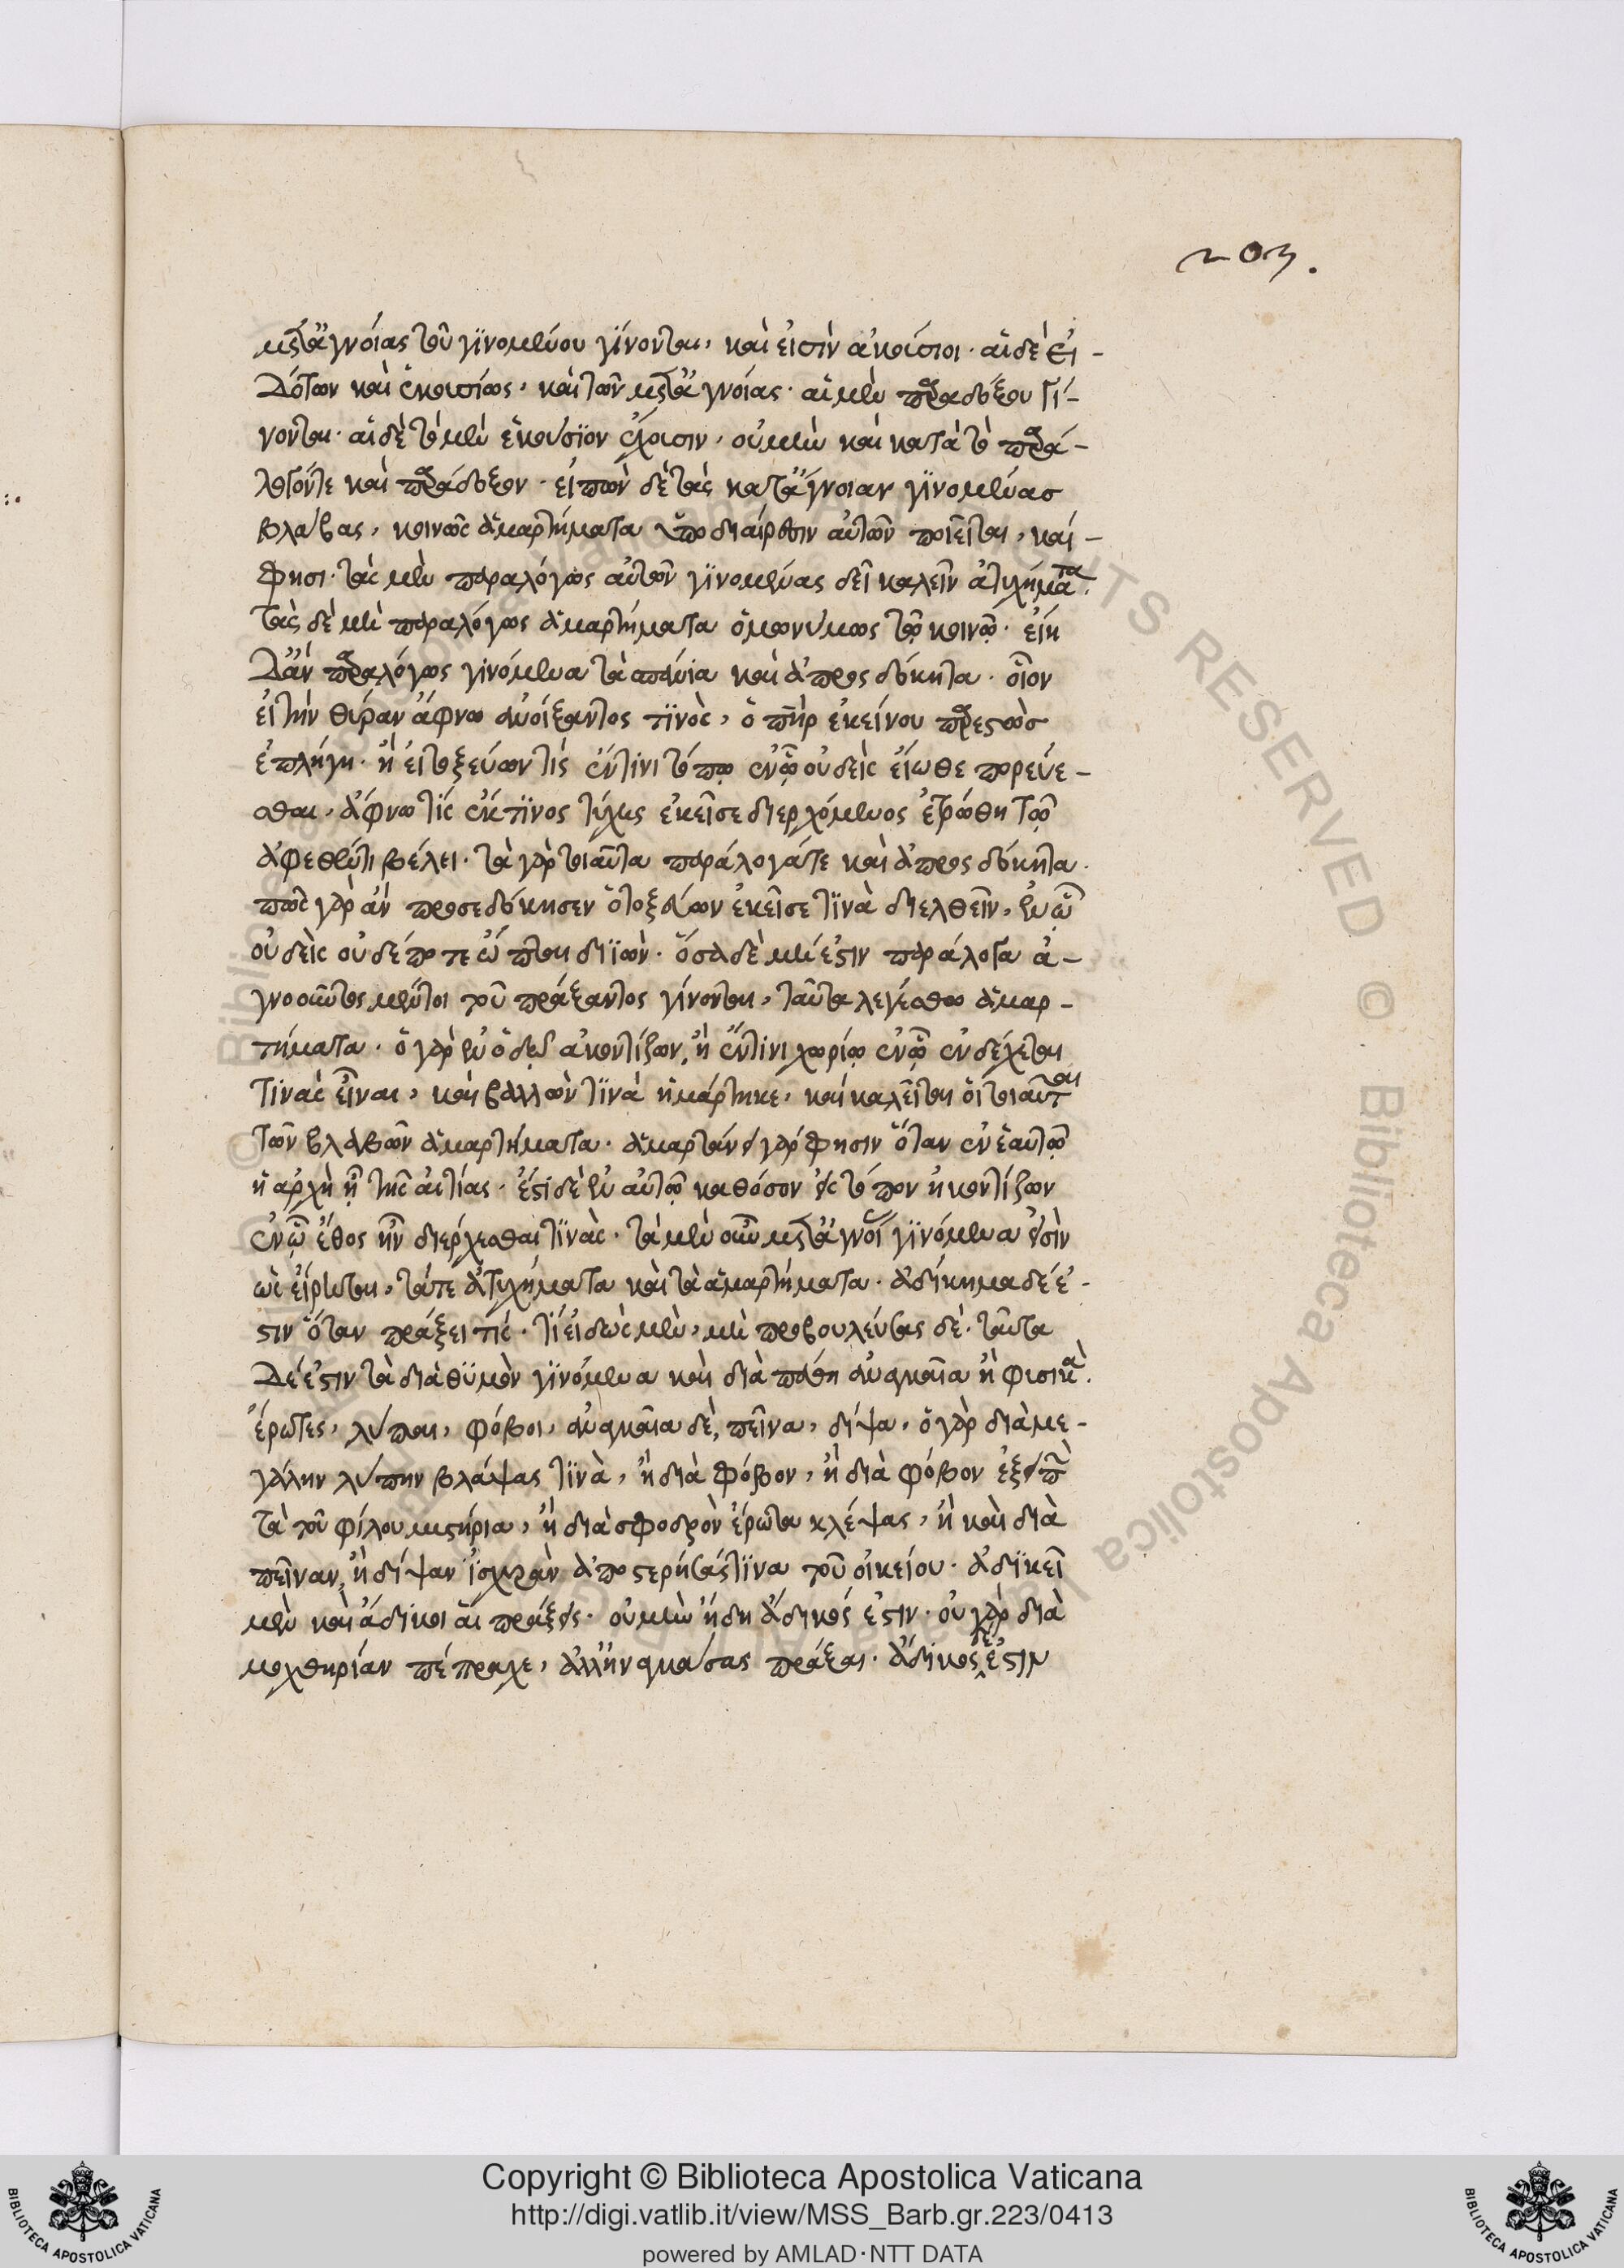 203.
μετ' ἀγνοίας τοῦ γινομένου γίνονται, καὶ εἰσὶν ἀκούσιοι· αἱ δὲ εἰ-
δότων καὶ ἑκουσίως, καὶ τῶν μετ' ἀγνοίας· αἱ μὲν παραδόξου γί-
νονται· αἱ δὲ τὸ μὲν ἑκούσιον ἔχουσιν, οὐ μὴν καὶ κατὰ τὸ παρά-
λογόν τε καὶ παράδοξον· εἰπὼν δὲ τὰς κατ' ἄγνοιαν γινομένας
βλάβας, κοινῶς ἁμαρτήματα ὑποδιαίρεσιν αὐτῶν ποιεῖται, καὶ-
φησι· τὰς μὲν παραλόγως αὐτῶν γινομένας δεῖ καλεῖν ἀτυχήματα·
τὰς δὲ μὴ παραλόγως ἁμαρτήματα ὁμωνύμως τῷ κοινῷ· εἴη
δ' ἂν παραλόγως γινόμενα τὰ σπάνια καὶ ἀπροσδόκητα· οἷον
εἰ τὴν θύραν ἄφνω ἀνοίξαντος τινὸς, ὁ πὴρ ἐκείνου παρεστὼς
ἐπλήγη· ἢ εἰ τοξεύων τὶς ἔν τινι τόπῳ ἐν ᾧ οὐδεὶς εἴωθε πορεύε-
σθαι, ἄφνω τὶς ἔκ τινος τύχης ἐκεῖσε διερχόμενος ἐτρώθη τῷ
ἀφεθέντι βέλει· τὰ γὰρ τοιαῦτα παράλογά τε καὶ ἀπροσδόκητα·
πῶς γὰρ ἂν προσεδόκησεν ὁ τοξεύων ἐκεῖσε τινὰ διελθεῖν, ἐν ᾧ
οὐδεὶς οὐδέποτε ὦπται διϊών· ὅσα δὲ μή ἐστιν παράλογα ἀ-
γνοοῦντος μέντοι τοῦ πράξαντος γίνονται, ταῦτα λεγέσθω ἁμαρ-
τήματα· ὁ γὰρ ἐν ὁδῷ ἀκοντίζων, ἢ ἔν τινι χωρίῳ ἐν ᾧ ἐνδέχεται
τινὰς εἶναι, καὶ βαλλὼν τινὰ ἡμάρτηκε, καὶ καλεῖται οἱ τοιαῦται
τῶν βλαβῶν ἁμαρτήματα· ἁμαρτάνει γάρ φησιν ὅταν ἐν ἑαυτῷ
ἡ ἀρχὴ ᾖ τῆς αἰτίας· ἔστι δὲ ἐν αὐτῷ καθόσον εἰς τόπον ἠκοντίζων
ἐν ᾧ ἔθος ἦν διέρχεσθαι τινὰς· τὰ μὲν οὖν μετ' ἀγνοί γινόμενα εἰσὶν
ὡς εἴρηται, τά τε ἀτυχήματα καὶ τὰ ἁμαρτήματα· ἀδίκημα δέ ἐ-
στιν ὅταν πράξει τις· τί εἰδὼς μὲν, μὴ προβουλεύσας δὲ· ταῦτα
δέ ἐστιν τὰ διὰ θυμὸν γινόμενα καὶ διὰ πάθη ἀναγκαῖα ἢ φισικὰ·
ἔρωτες, λύπαι, φόβοι, ἀναγκαῖα δὲ, πεῖνα, δίψα, ὁ γὰρ διὰ με-
γάλην λύπην βλάψας τινὰ, ἢ διὰ φόβον, ἢ διὰ φόβον ἐξειπὼν
τὰ τοῦ φίλου μυστήρια, ἢ διὰ σφοδρὸν ἔρωτα κλέψας, ἢ καὶ διὰ
πεῖναν, ἢ δίψαν ἰσχυρὰν ἀποστερήσας τινα τοῦ οἰκείου· ἀδικεῖ
μὲν καὶ ἄδικοι αἱ πράξεις· οὐ μὴν ἤδη ἄδικός ἐστιν· οὐ γὰρ διὰ
μοχθηρίαν πέπραχε, ἀλλ' ἠναγκάσας πράξαι· ἄδικος δέ ἐστιν